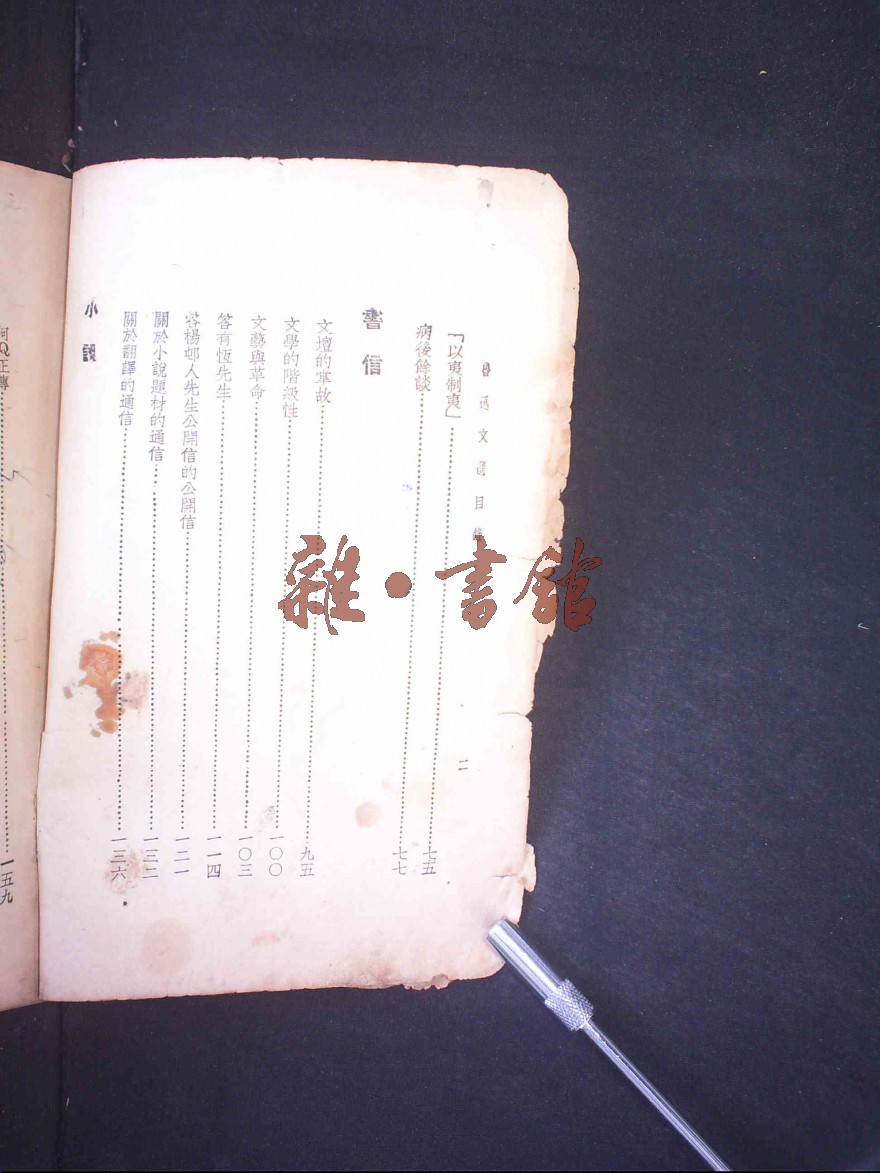 魯迅文選目錄
二
「以夷制夷」……七五
病後餘談……七七
書信
文壇的掌故……九五
文學的階級性……一〇〇
文藝與革命……一〇三
答有恆先生……一一四
答楊邨人先生公開信的公開信……一二一
關於小說題材的通信……一三二
關於翻譯的通信……一三六
小說
阿Q正傳……一五九
雜·書館